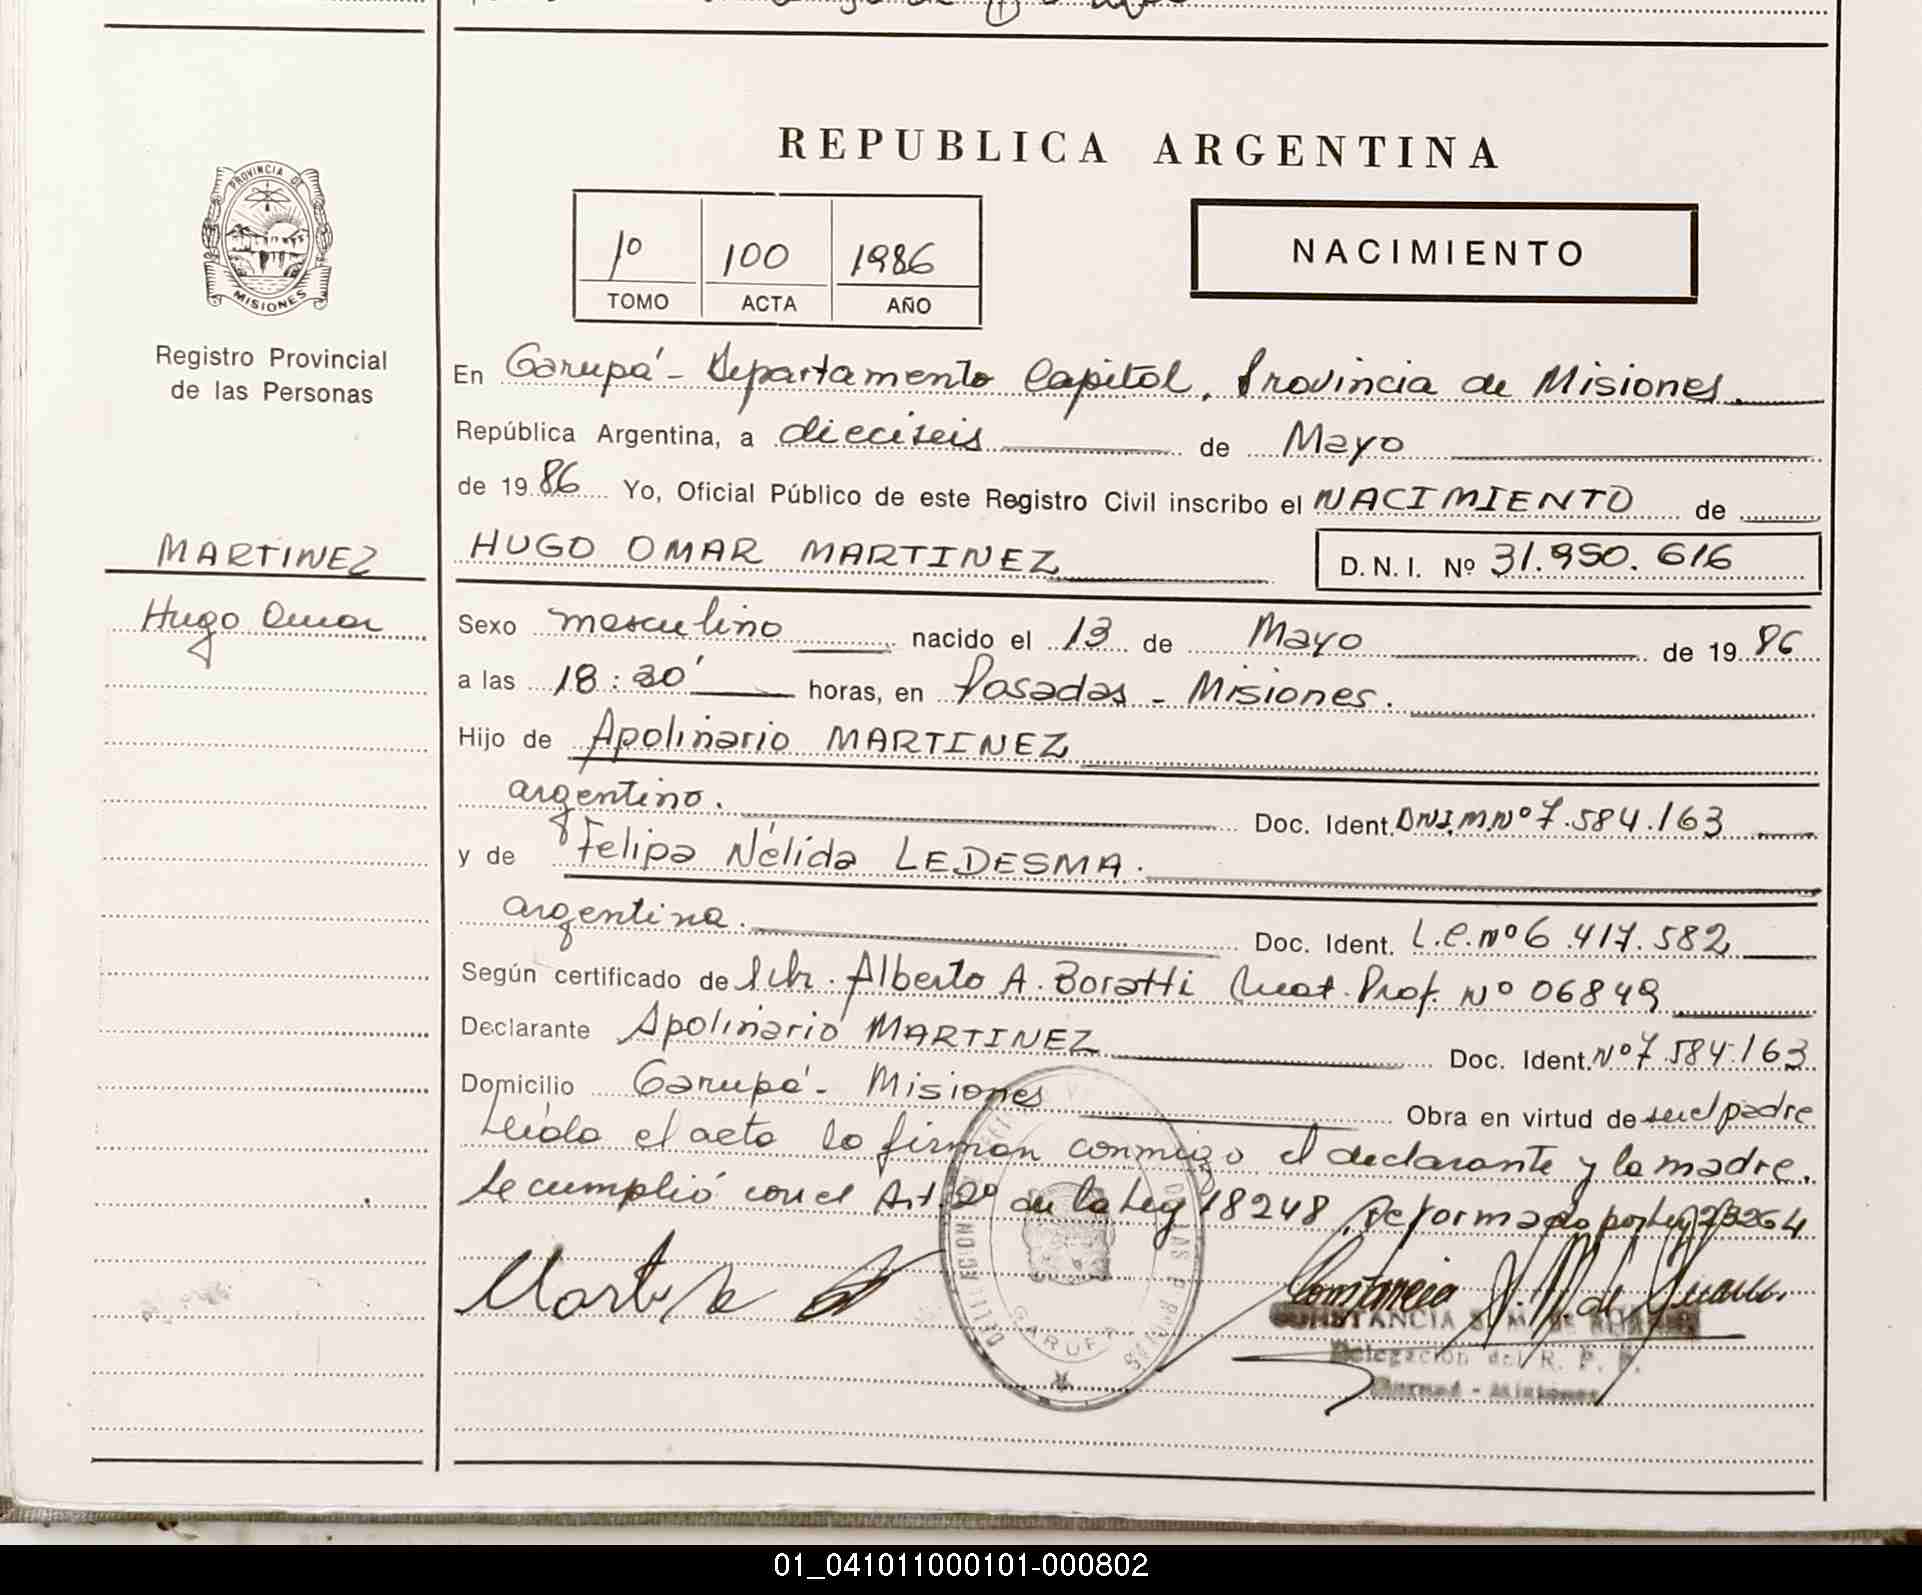 REPUBLICA ARGENTINA
PROVINCIA DE
MISIONES
1º 100 1986
TOMO ACTA AÑO
NACIMIENTO
Registro Provincial
de las Personas
En Garupá - Departamento Capital, Provincia de Misiones.
República Argentina, a dieciseis de Mayo
de 1986 Yo, Oficial Público de este Registro Civil inscribo el NACIMIENTO de
MARTINEZ
Hugo Omar
HUGO OMAR MARTINEZ D.N.I. Nº 31.950.616
Sexo masculino nacido el 13 de Mayo de 1986
a las 18: horas, en Posadas - Misiones.
Hijo de Apolinario MARTINEZ
argentino. Doc. Ident. D.N.I.M.Nº 7.584.163
y de Felipa Nélida LEDESMA.
argentina. Doc. Ident. L.C. Nº 6.417.582
Según certificado de Alberto A. Boratti Mat. Prof. Nº 06849
Declarante Apolinario MARTINEZ Doc. Ident. Nº 7.584.163
Domicilio Garupá - Misiones Obra en virtud de ser el padre
Leída el acta la firman conmigo el declarante y la madre.
Se cumplió con el Art. 2º de la Ley 18248, reformado por Ley 23264
DELEGACION
DE LAS P
GARUPA
Constancia
CONSTANCIA S. M. DE
Delegación del R. P. P.
Garupá - Misiones
01_041011000101-000802